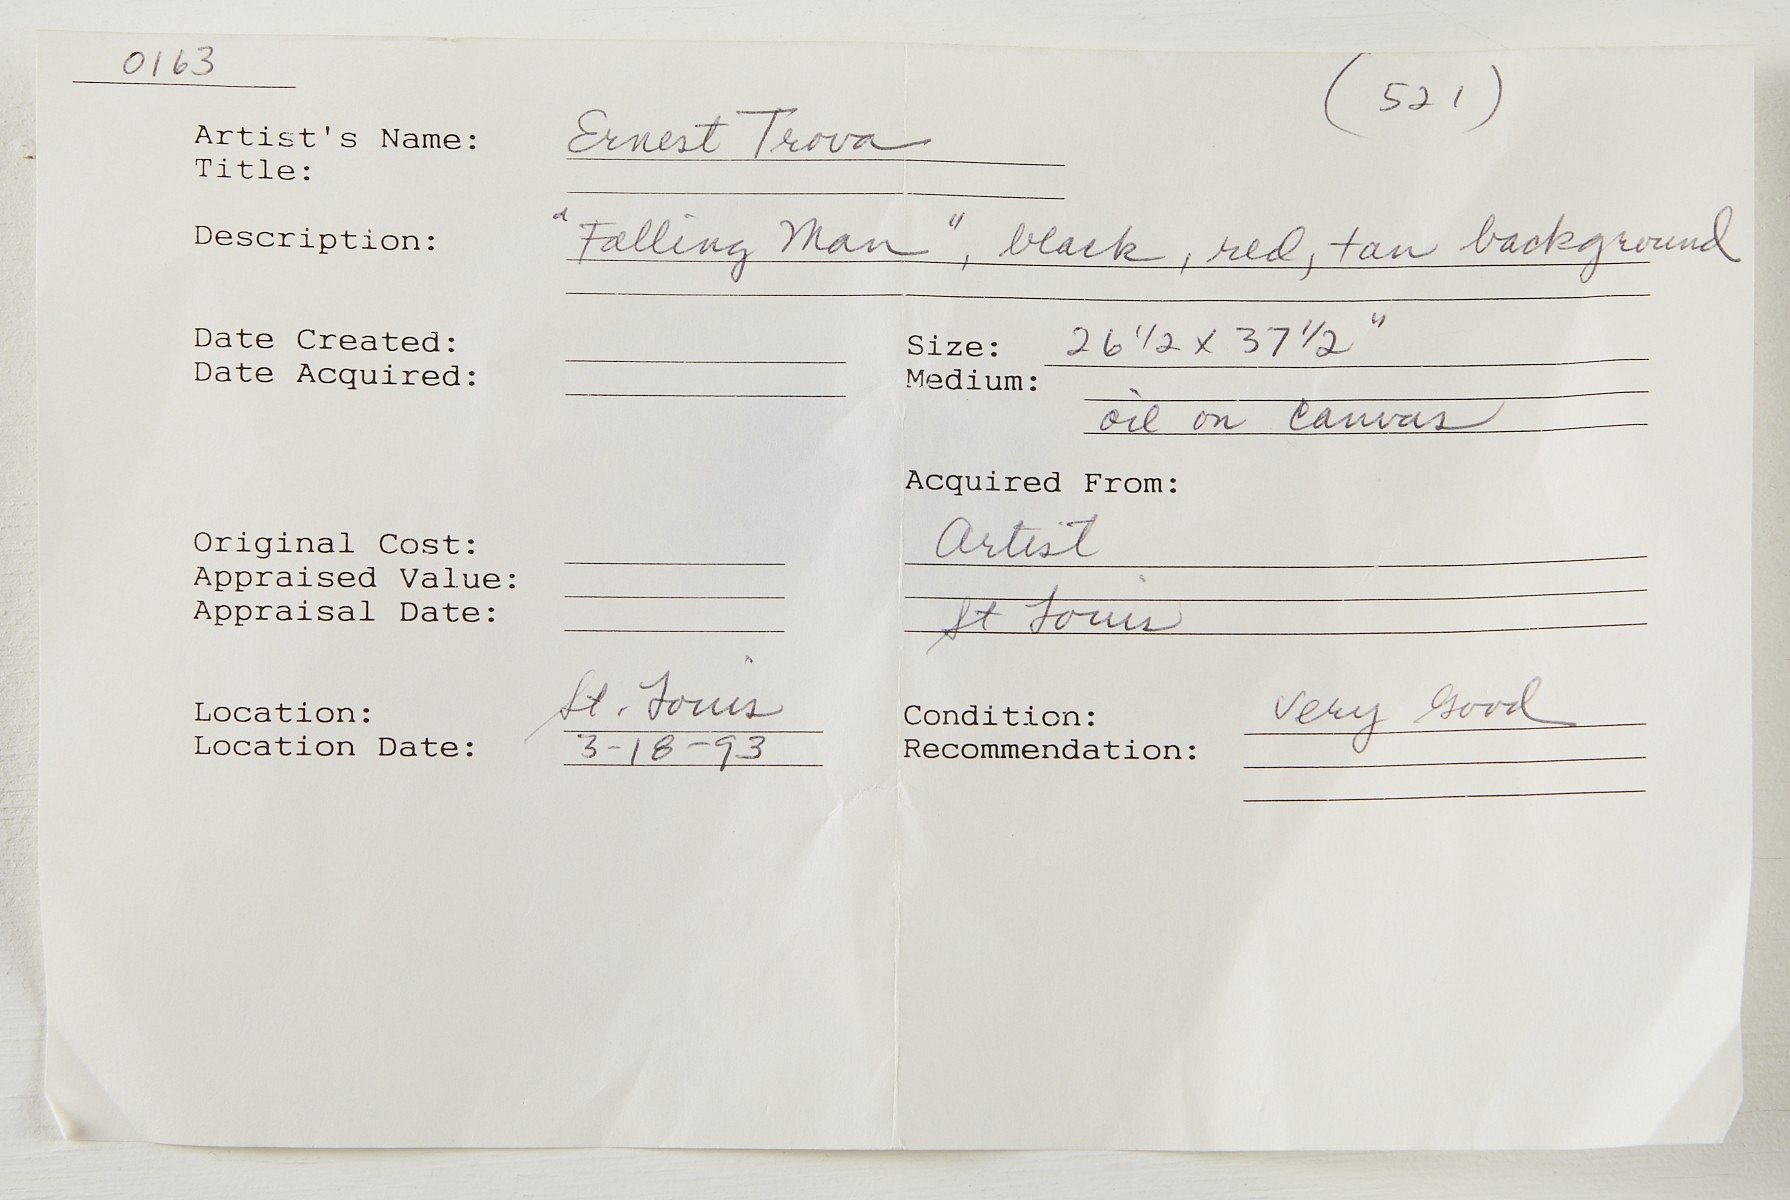 0163
(521)
Artist's Name: Ernest Trova
Title:
Description: "Falling Man", black, red, tan background
Date Created:
Size: 26 1/2 x 37 1/2"
Date Acquired:
Medium:
oil on canvas
Acquired From:
Artist
Original Cost:
Appraised Value:
Appraisal Date:
St Louis
Location: St. Louis
Condition: Very Good
Location Date: 3-18-93
Recommendation: